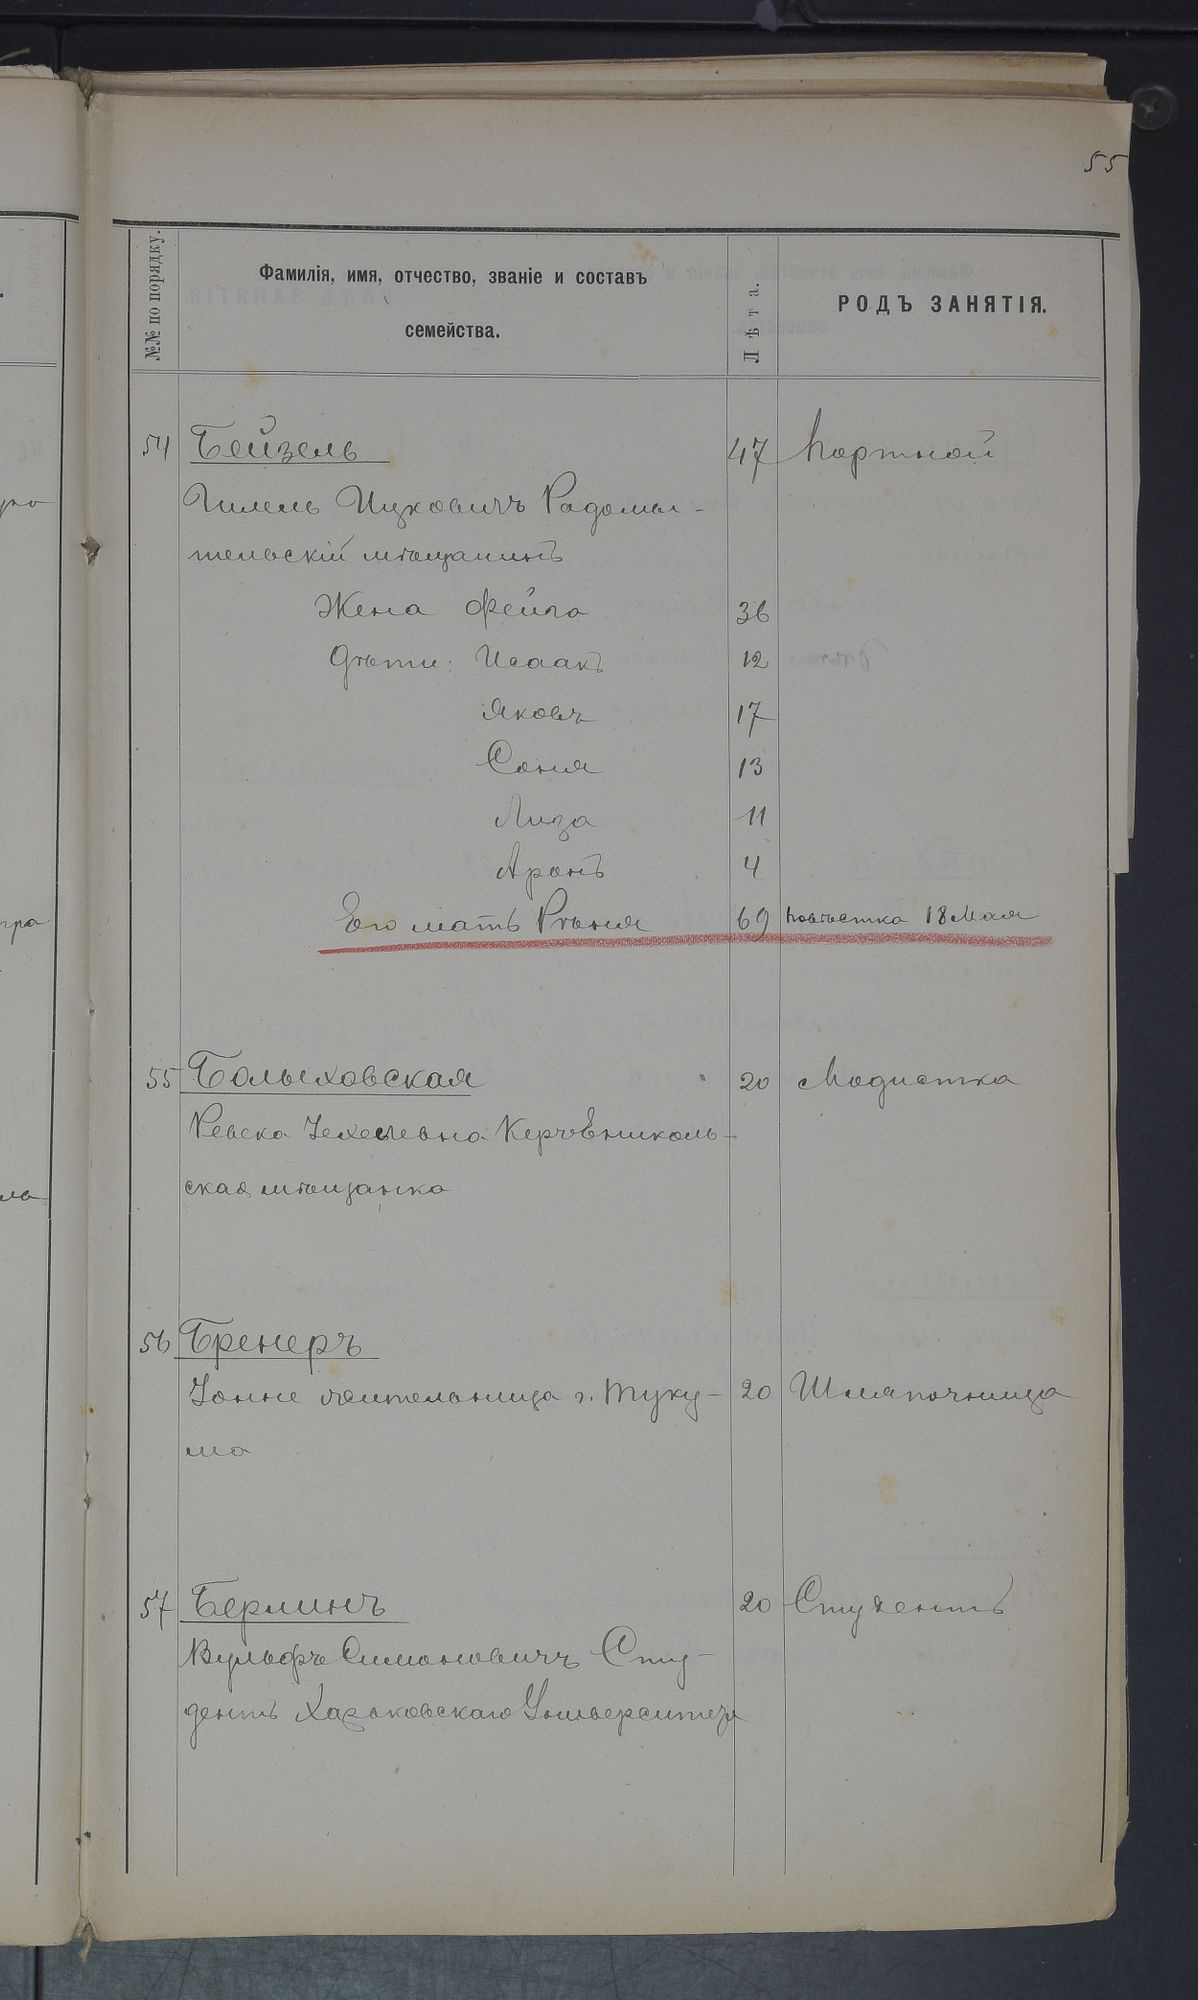 55
№№ по порядку.
Фамилія, имя, отчество, званіе и составъ
семейства.
Лѣта.
РОДЪ ЗАНЯТІЯ.
54 Бейзель 47 Портной
Гилель Ицковичъ Радомы-
тельскій мѣщанинъ
Жена Фейга 36
Дѣти: Исаакъ 12
Яковъ 17
Соня 13
Лиза 11
Аронъ 4
Его мать Рѣеня 69 повѣстка 18 Мая
55 Болыховская 20 Модистка
Ревека Мѣщанка
56 Бренеръ
жительница г. Туку- 20 Шляпочница
ма
57 Берлинъ 20 Студентъ
Вульфъ Симоновичъ Сту-
дентъ Харьковскаго Университета